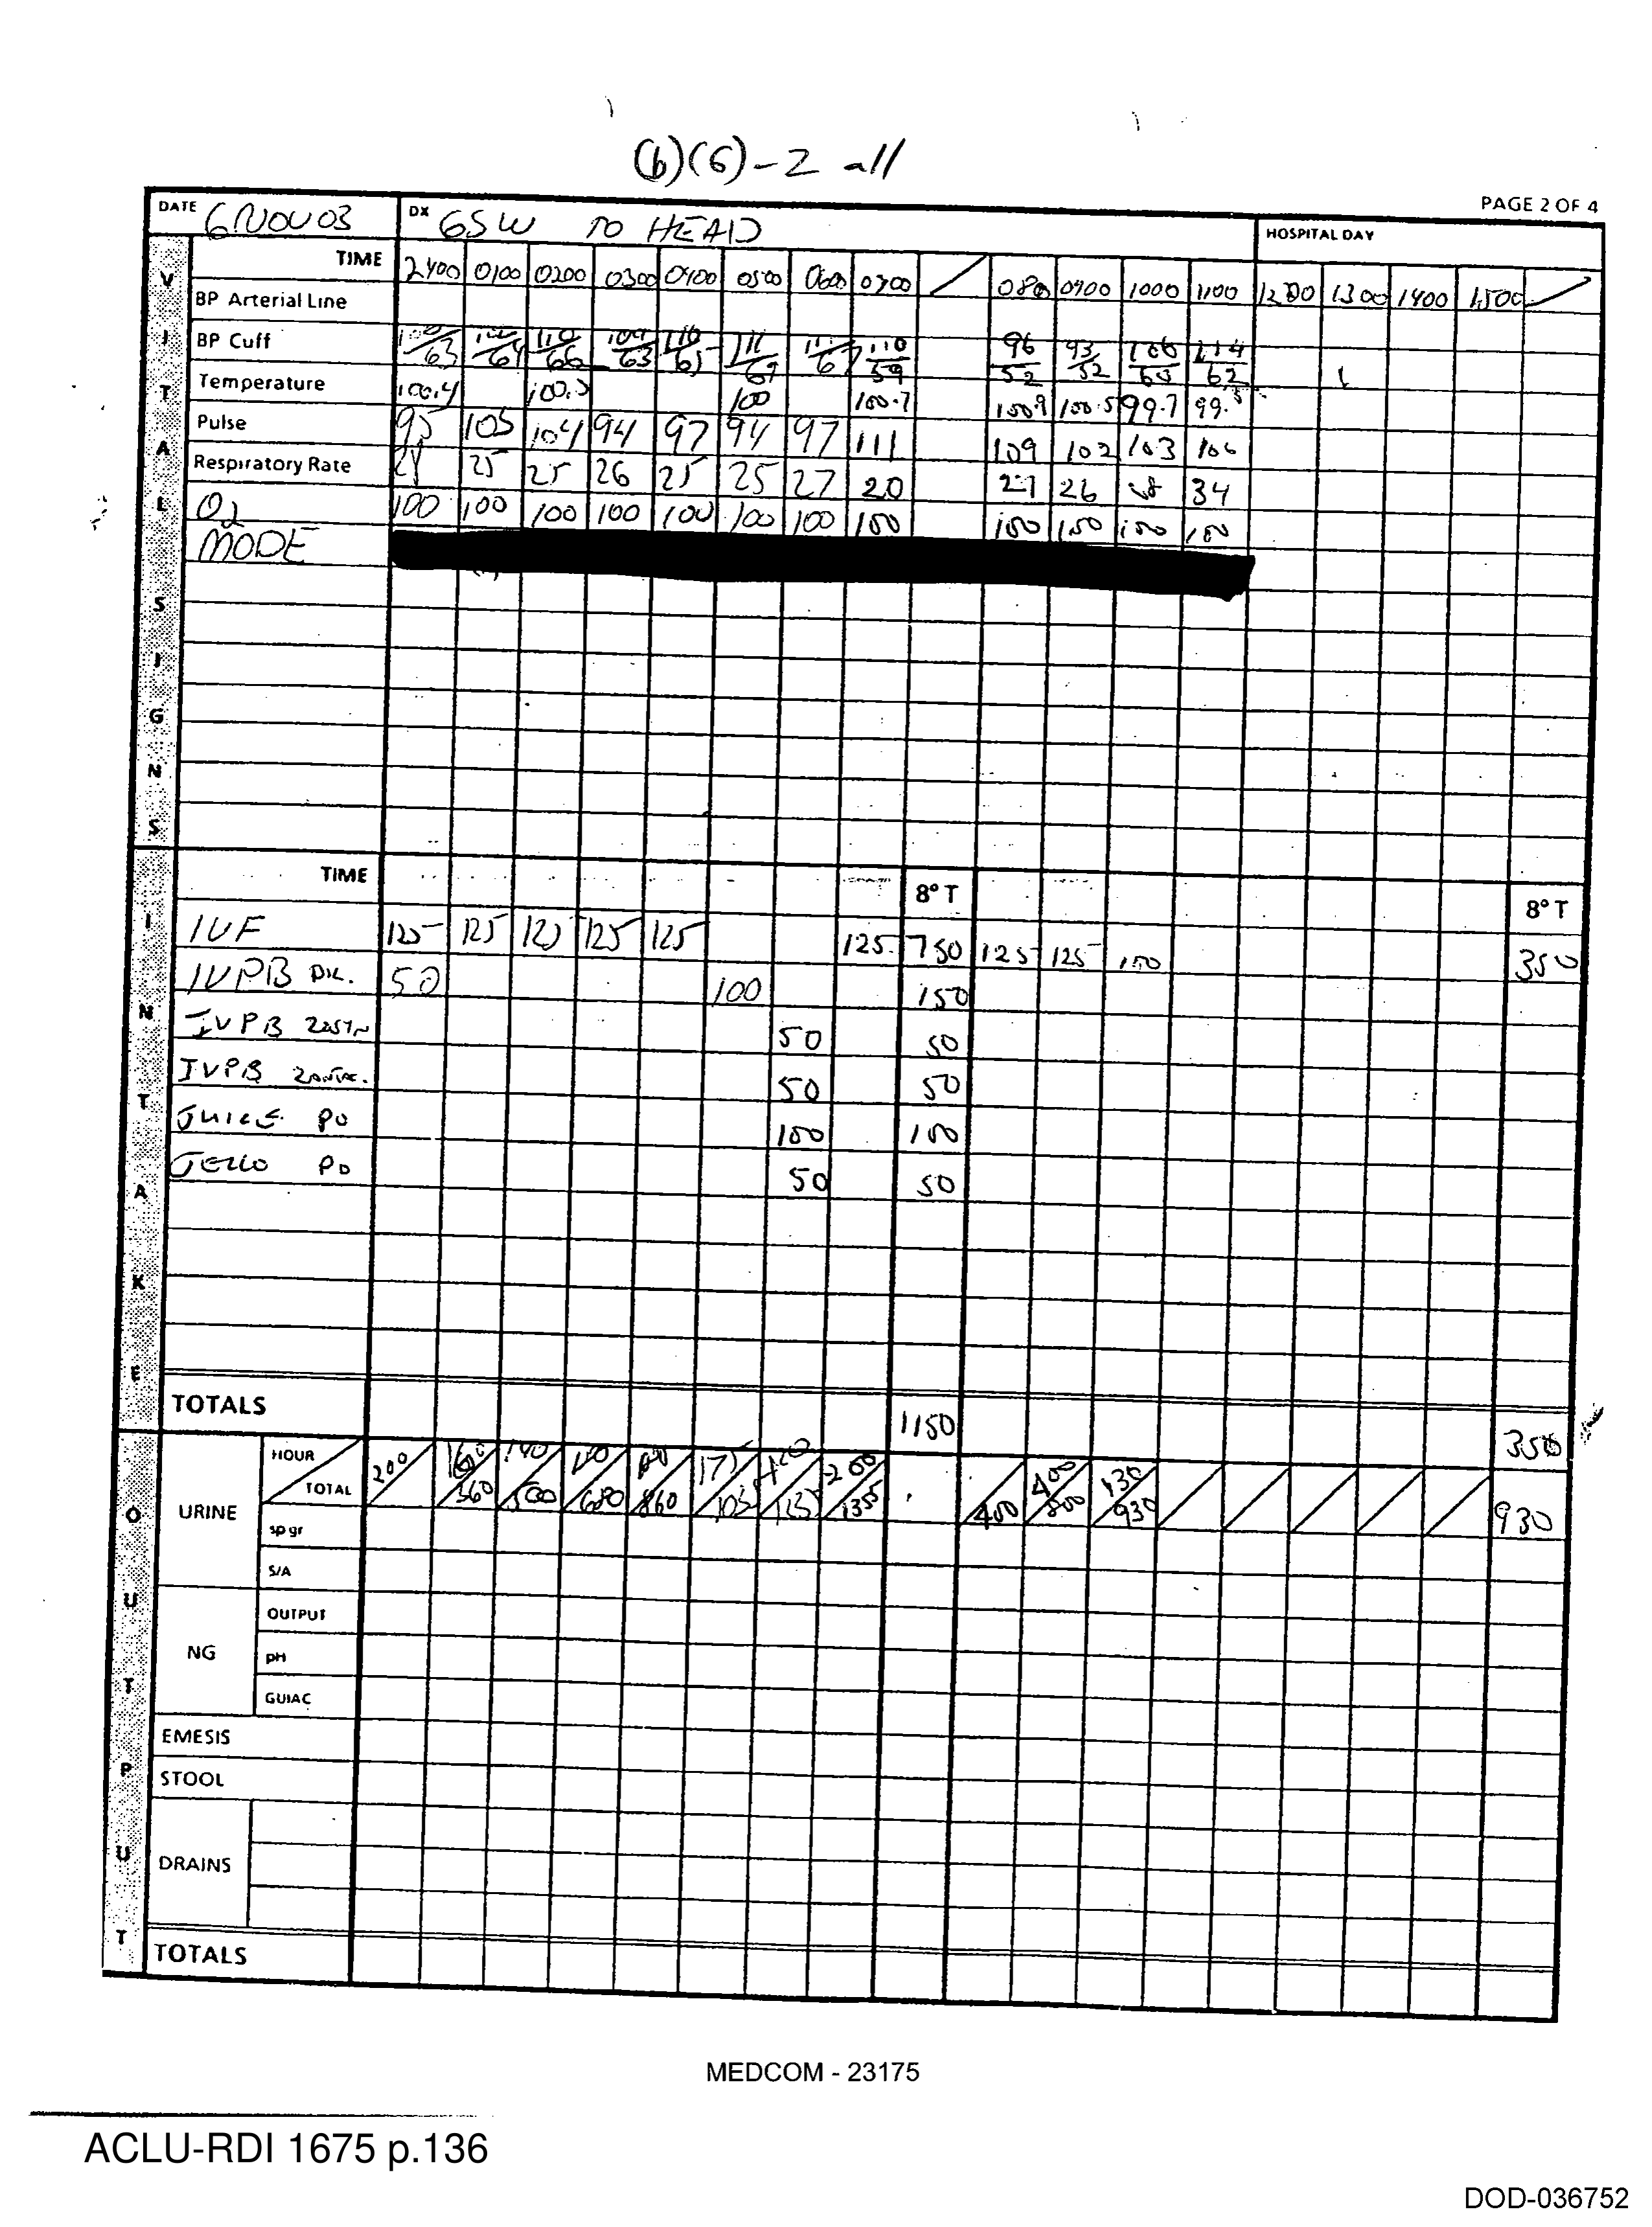 (b)(6)-2 all
PAGE 2 OF 4
DATE 6 NOV 03 DX GSW TO HEAD HOSPITAL DAY
VITAL SIGNS
TIME 2400 0100 0200 0300 0400 0500 0600 0700 0800 0900 1000 1100 1200 1300 1400 1500
BP Arterial Line
BP Cuff /63 /64 110/66 109/63 110/65 111/67 /67 110/59 96/52 93/52 106/60 114/62
Temperature 100.4 100 100.7 100.9 100.5 99.7 99.5
Pulse 95 105 104 94 97 94 97 111 109 102 103 106
Respiratory Rate 25 25 26 25 25 27 20 27 26 34
O2 100 100 100 100 100 100 100 100 100 100 100 100
MODE
INTAKE
TIME 8° T 8° T
IVF 125 125 125 125 125 125 750 125 125 100 350
IVPB DIL. 50 100 150
IVPB 50 50
IVPB ZANTAC. 50 50
JUICE PO 100 100
JELLO PO 50 50
TOTALS 1150 350
OUTPUT
URINE HOUR 200 160 140 175 120 200 400 130
TOTAL 360 500 680 860 1035 1355 400 800 930 930
sp gr
S/A
NG
OUTPUT
pH
GUIAC
EMESIS
STOOL
DRAINS
TOTALS
MEDCOM - 23175
ACLU-RDI 1675 p.136
DOD-036752